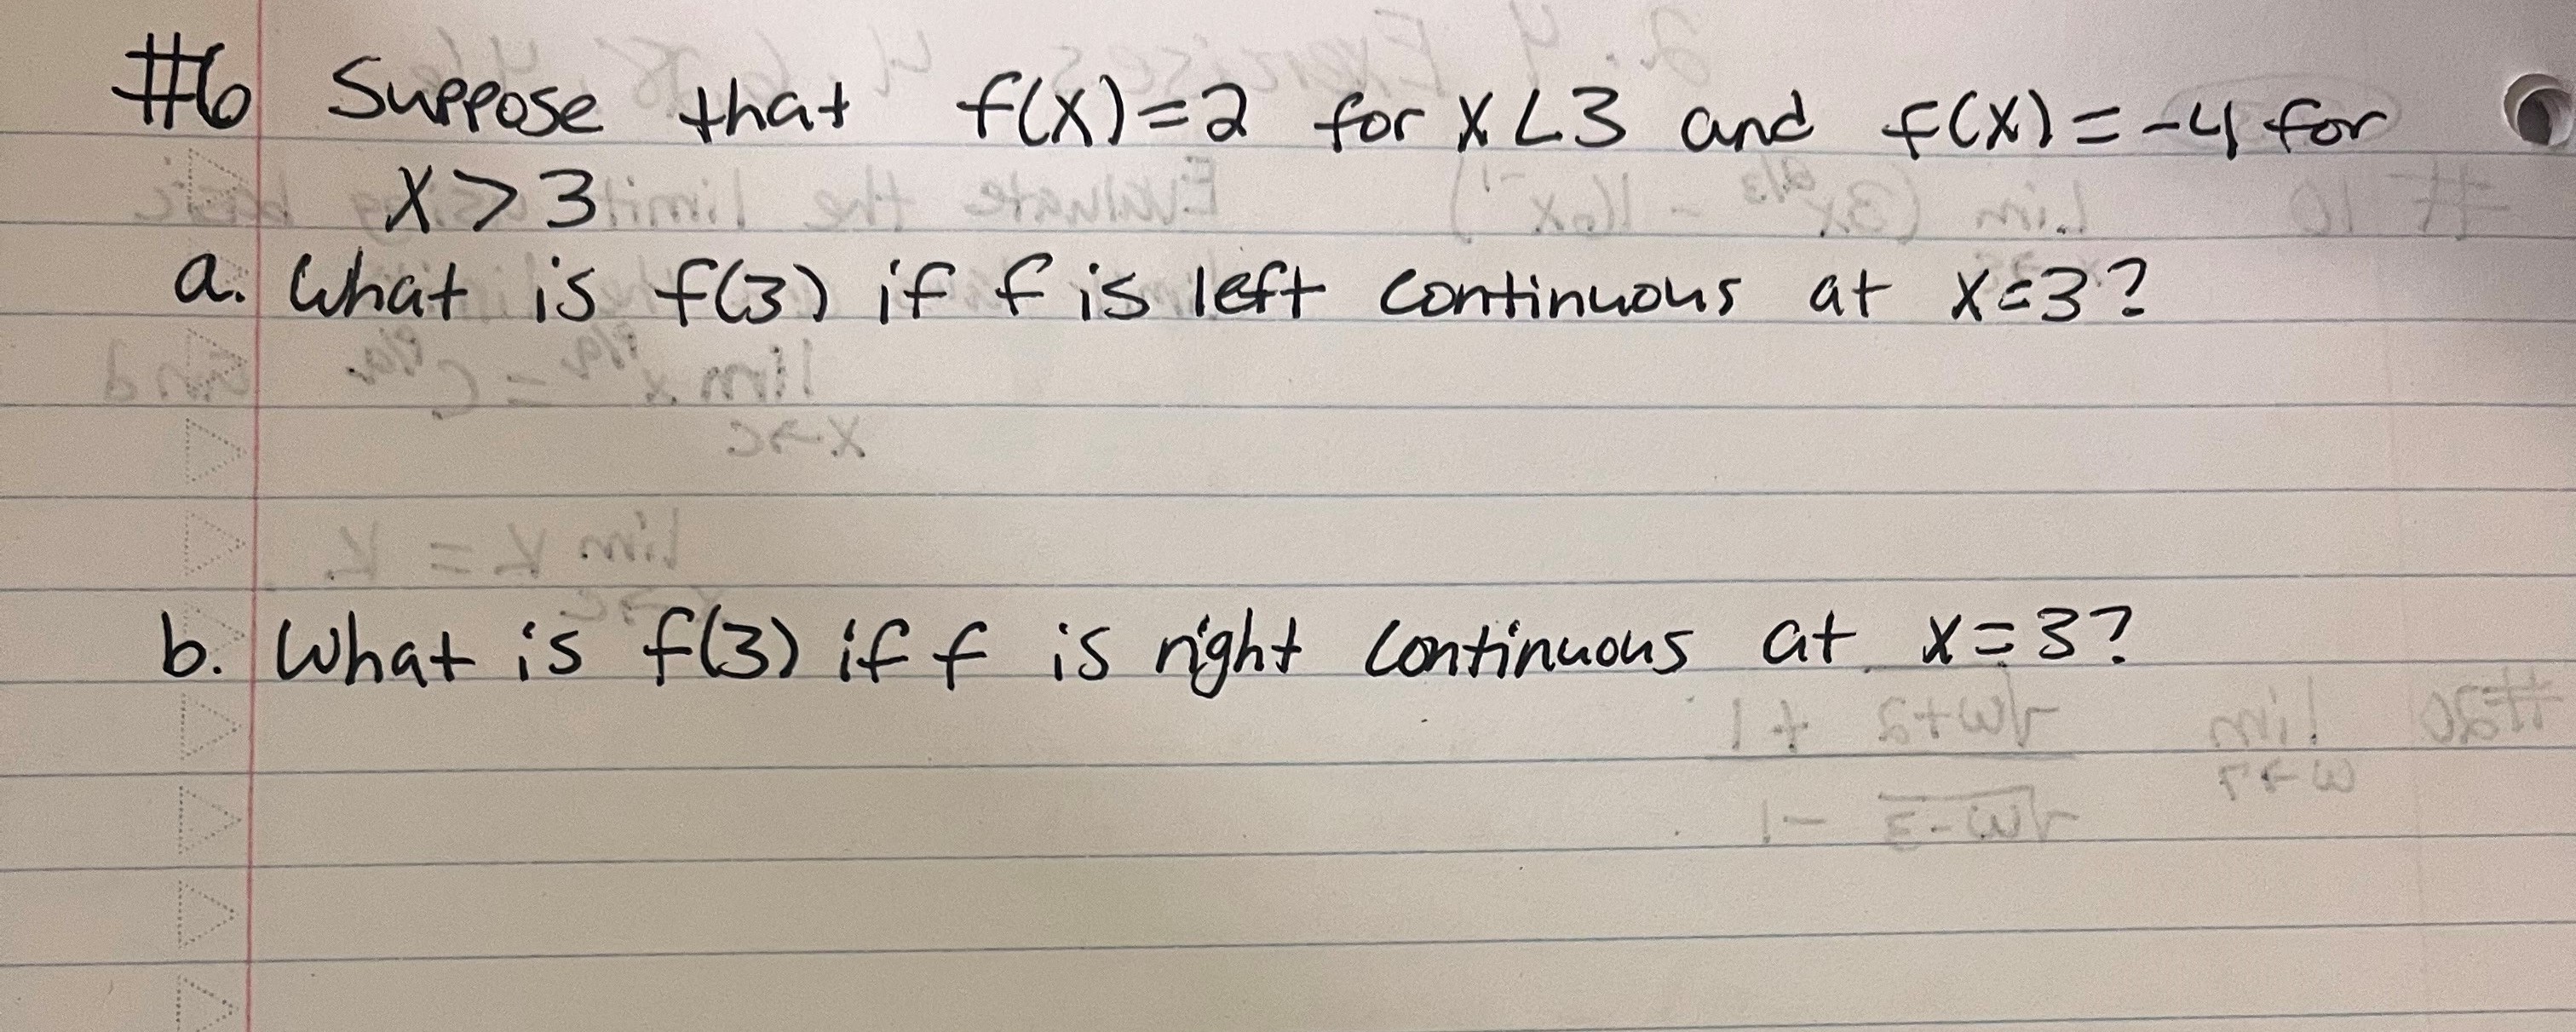 #6 Suppose that f(x)=2 for x<3 and f(x)=-4 for
x>3
a. What is f(3) if f is left continuous at x=3?
b. What is f(3) if f is right continuous at x=3?